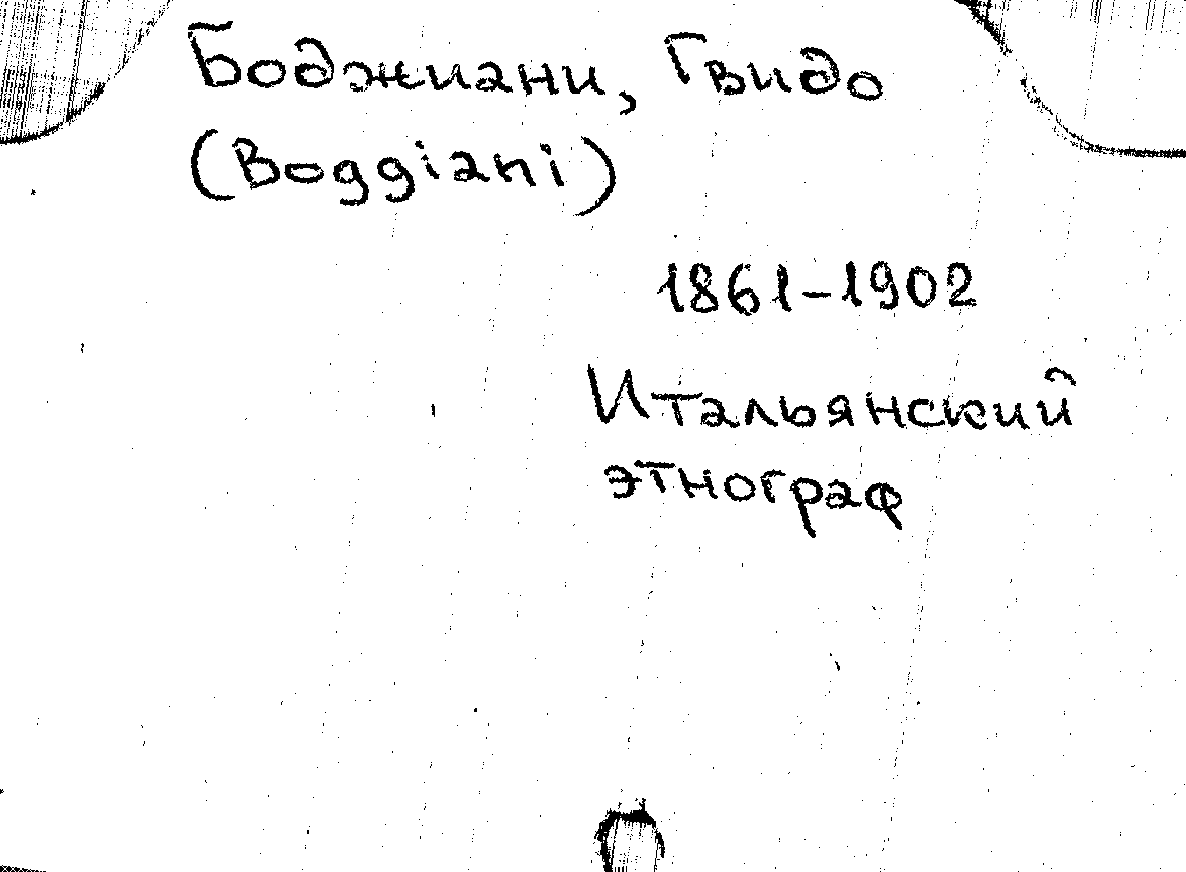 Боджиани, Гвидо
(Boggiani)
1861-1902
Итальянский
этнограф